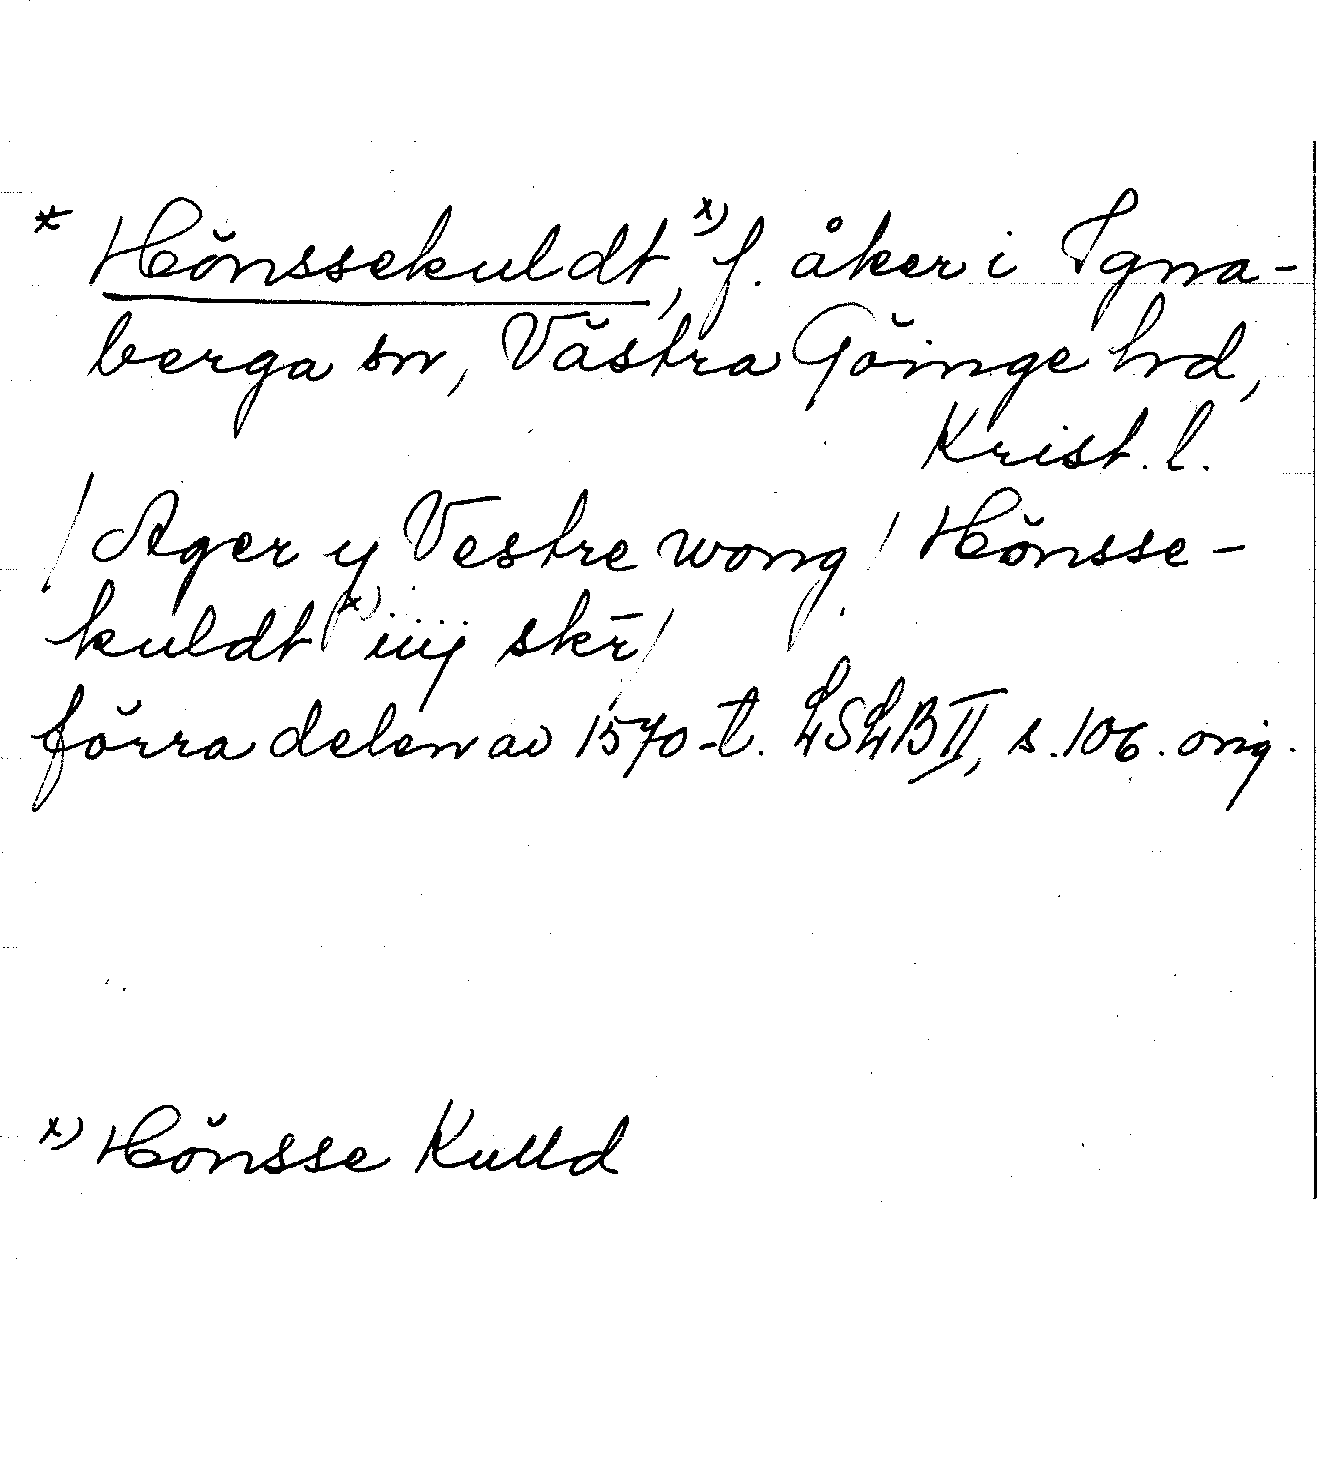 * Hönssekuldt,ˣ⁾ f. åker i Igna-
berga sn, Västra Göinge hd,
Krist. l.
/Ager y Vestre wong/ Hönsse-
kuldtˣ⁾ iiij skr̄/
förra delen av 1570-t. LSLB II, s. 106. orig.
ˣ⁾ Hönsse Kulld